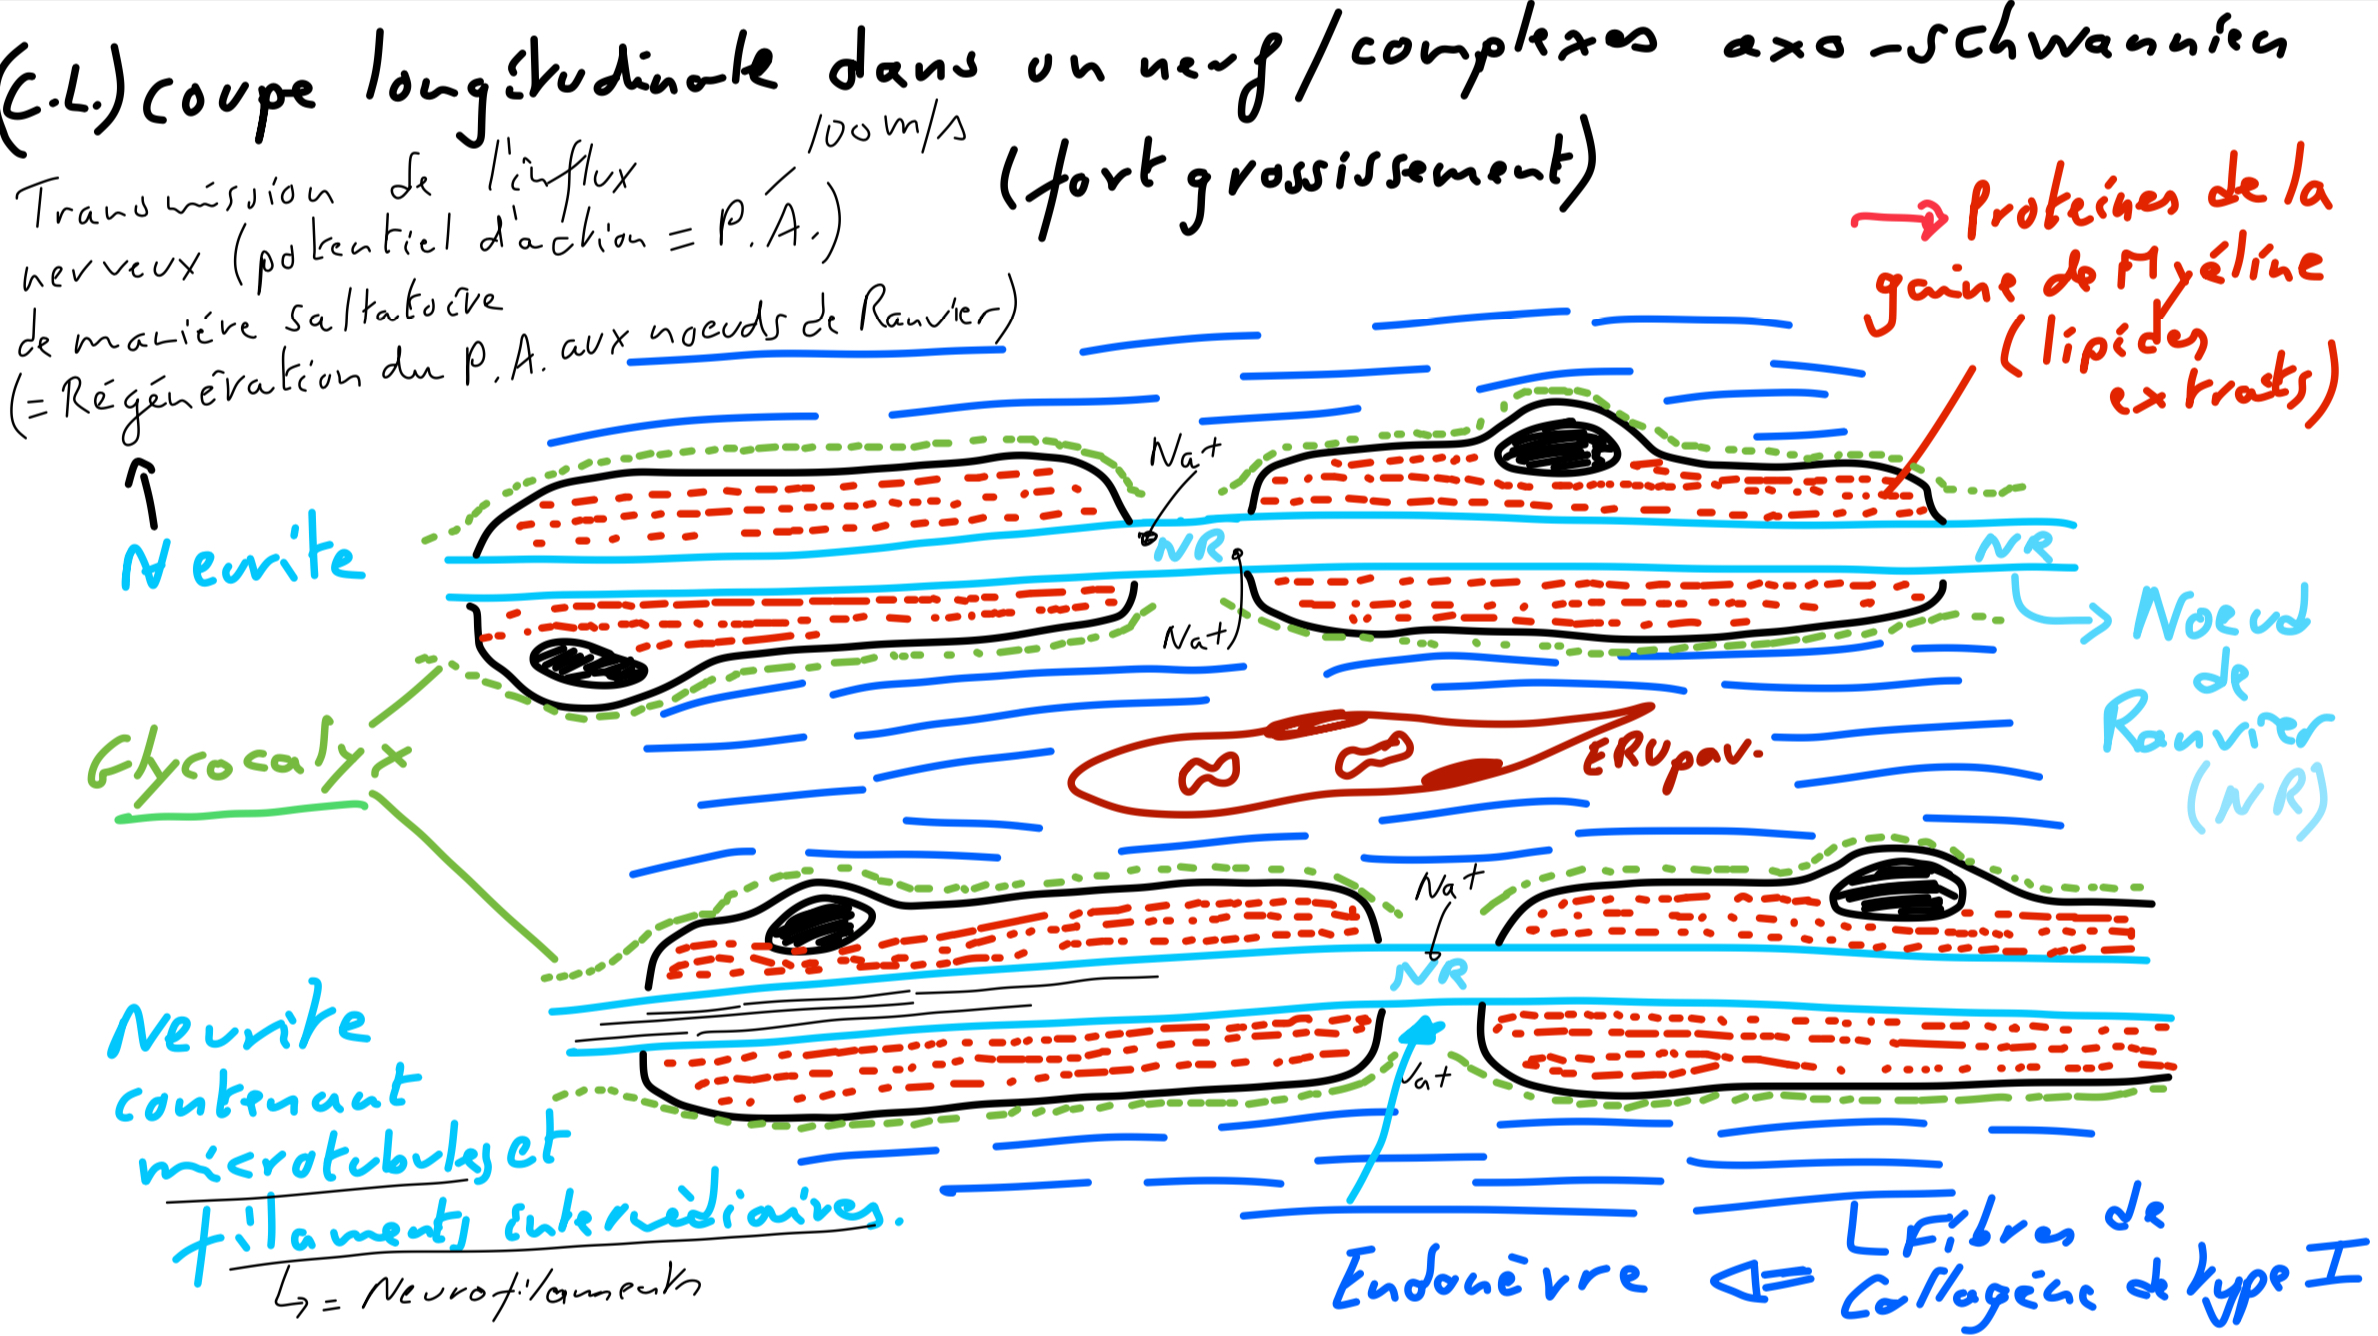 (C.L.) coupe longitudinale dans un nerf/complexes axo-schwannien
(fort grossissement)
Transmission de l'influx 100m/s
nerveux (potentiel d'action = P.A.)
de manière saltatoire
(= Régénération du P.A. aux noeuds de Ranvier)
→ Protéines de la
gaine de Myéline
(lipides
extraits)
Na+
Neurite
NR
NR
Na+
Noeud
de
Ranvier
(NR)
Glycocalyx
ERUpav.
Na+
NR
Neurite
contenant
microtubules et
filaments intermédiaires.
↳ = Neurofilaments
Na+
Fibres de
Collagène de type I
Endonèvre